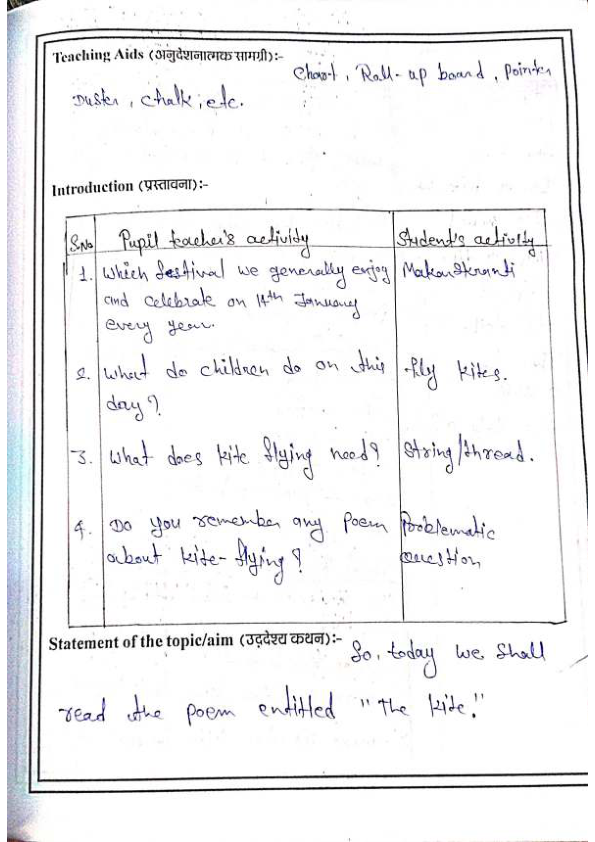 Teaching Aids (अनुदेशनात्मक सामग्री):-
Chart, Roll-up board, pointer
Duster, chalk, etc.
Introduction (प्रस्तावना):-
S.No Pupil teacher's activity Student's activity
1. Which festival we generally enjoy Makar Skranti
and celebrate on 14th January
every year.
2. What do children do on this fly kites.
day?
3. What does kite flying need? String/thread.
4. Do you remember any poem Problematic
about kite-flying? question
Statement of the topic/aim (उद्देश्य कथन):-
So, today we shall
read the poem entitled "The kite."